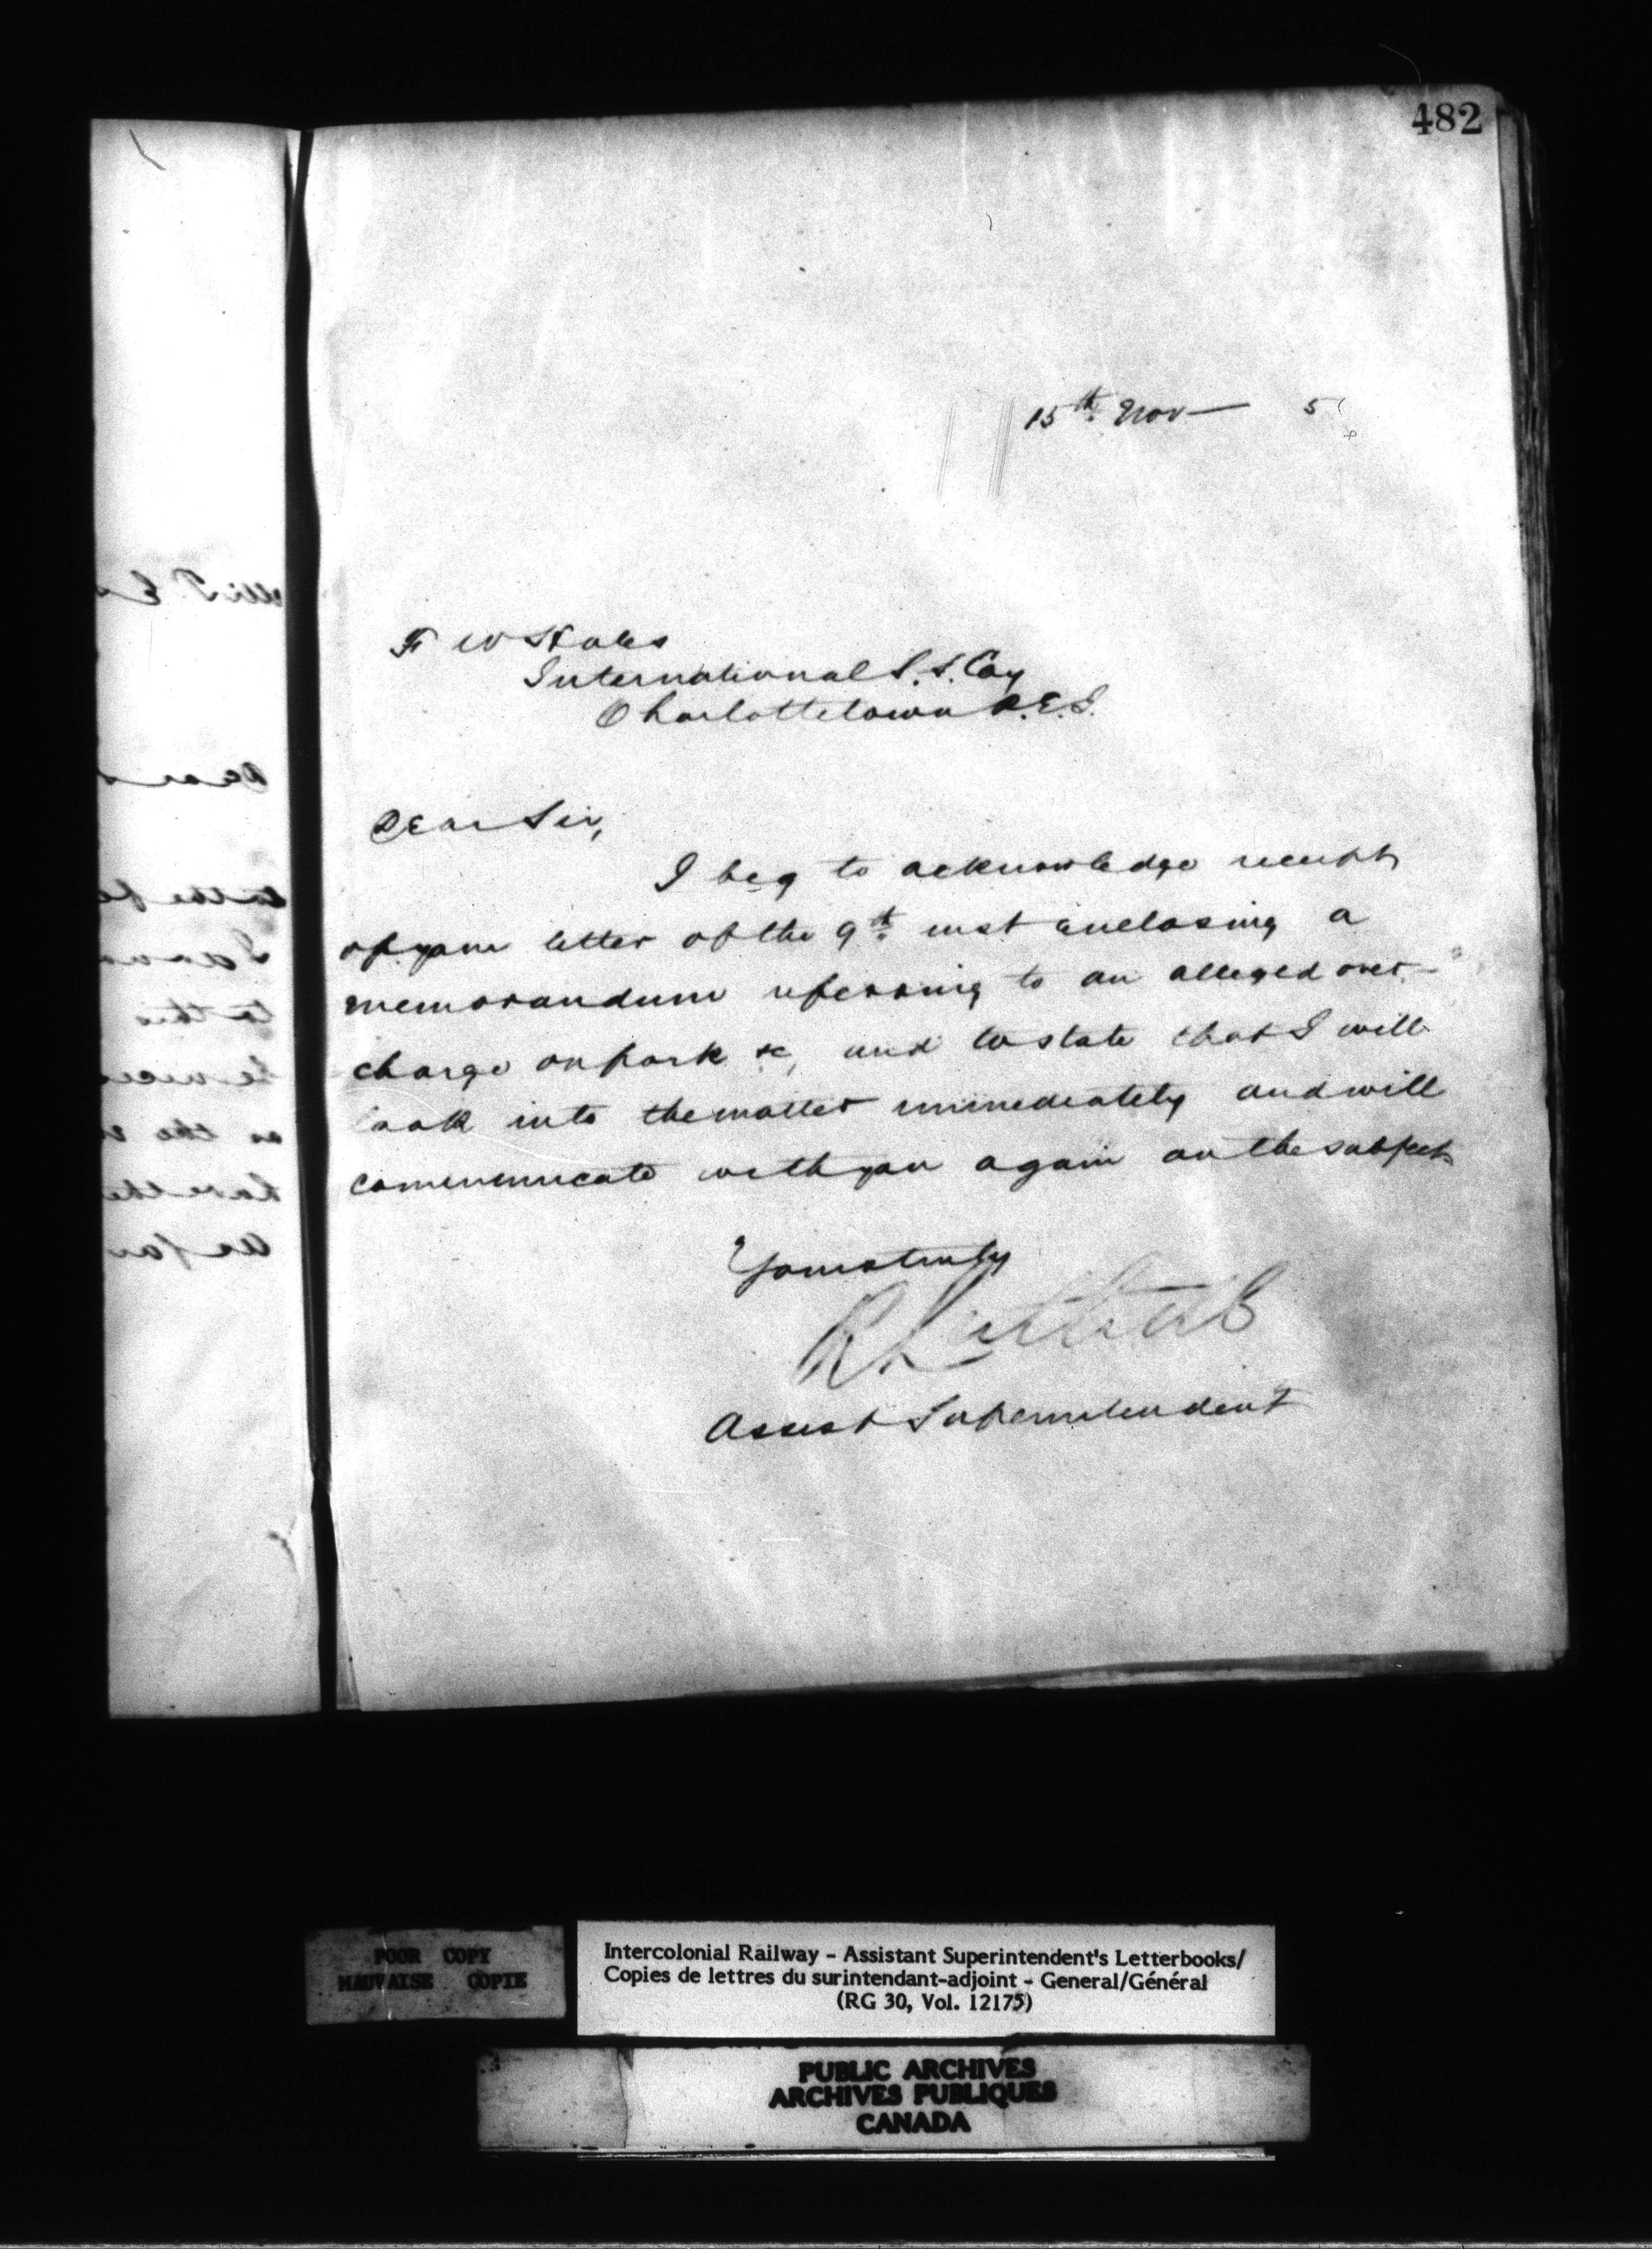 482
15th Nov 5
F W Hales
International S.S. Coy
Charlottetown P.E.I.
Dear Sir,
I beg to acknowledge receipt
of your letter of the 9th inst enclosing a
memorandum referring to an alleged over-
charge on pork &c, and to state that I will
look into the matter immediately and will
communicate with you again on the subject
Yours truly
R Luttrell
Assist Superintendent
POOR COPY
MAUVAISE COPIE
Intercolonial Railway - Assistant Superintendent's Letterbooks/
Copies de lettres du surintendant-adjoint - General/Général
(RG 30, Vol. 12175)
PUBLIC ARCHIVES
ARCHIVES PUBLIQUES
CANADA